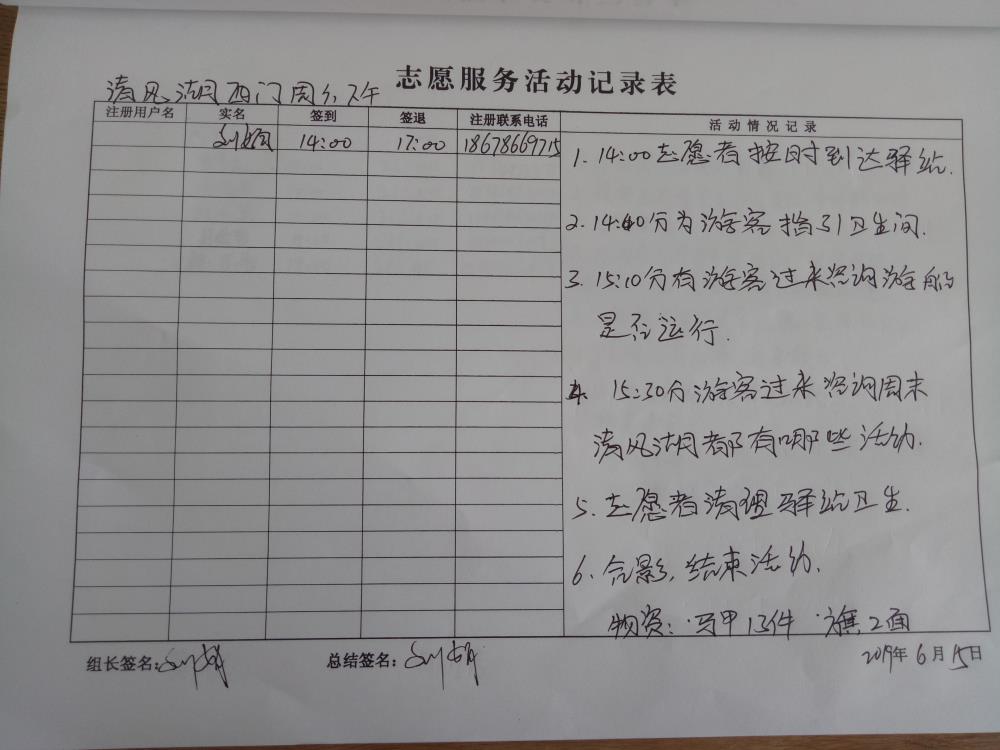 志愿服务活动记录表
清风湖西门周六下午
注册用户名 实名 签到 签退 注册联系电话 活动情况记录
刘娟 14:00 17:00 18678669715
1. 14:00志愿者按时到达驿站.
2. 14:40分为游客指引卫生间.
3. 15:10分有游客过来咨询游船
是否运行.
4. 15:30分游客过来咨询周末
清风湖都有哪些活动.
5. 志愿者清理驿站卫生.
6. 合影, 结束活动.
物资: 马甲13件 旗2面
组长签名: 刘娟 总结签名: 刘娟
2019年6月15日